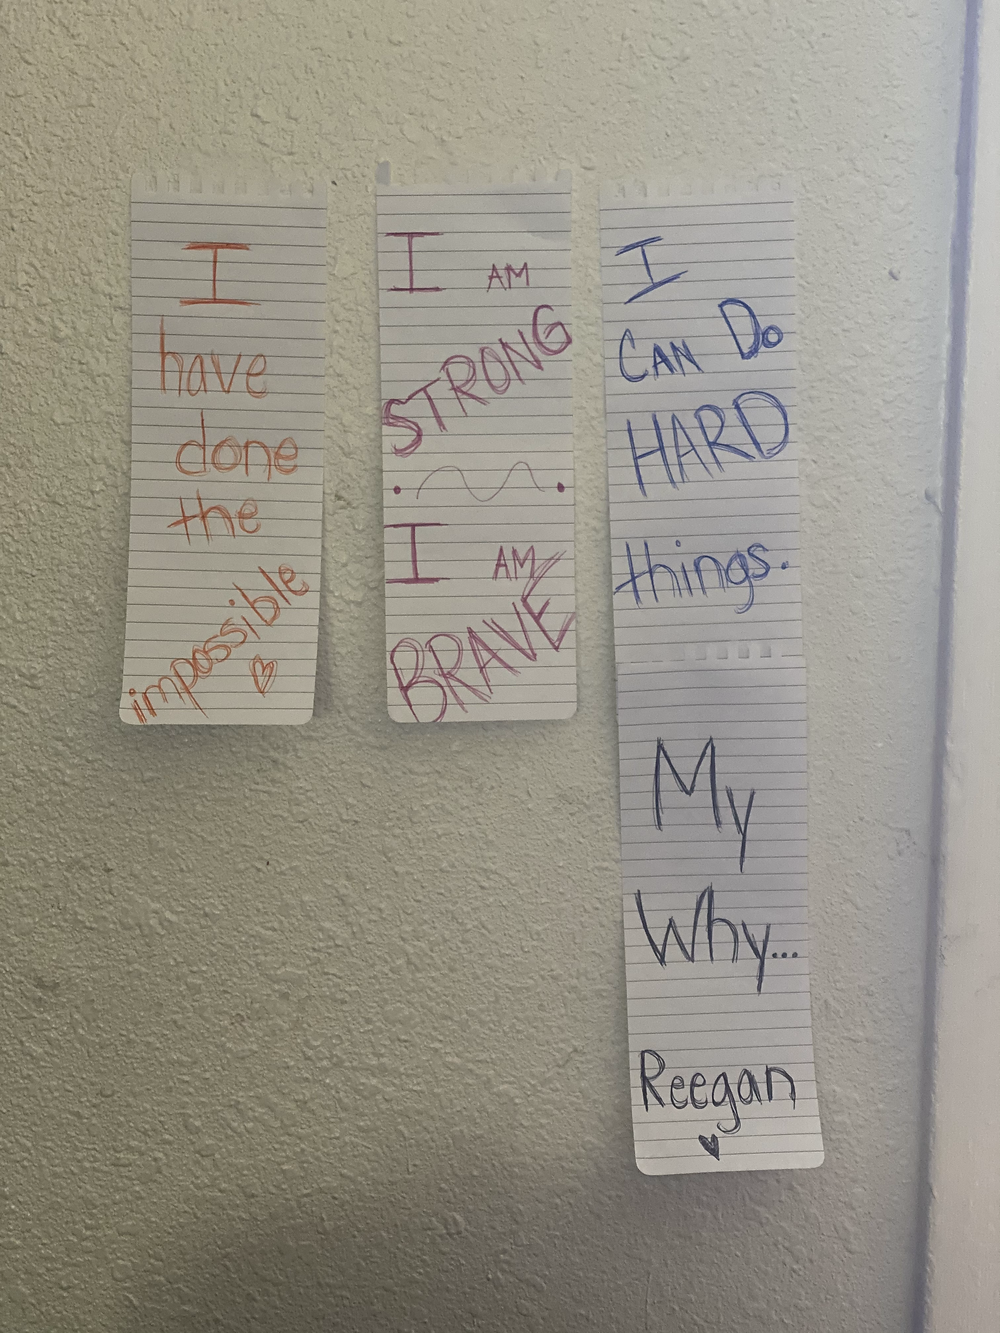 I
have
done
the
impossible
I AM
STRONG
I AM
BRAVE
I
CAN Do
HARD
things.
My
Why...
Reegan